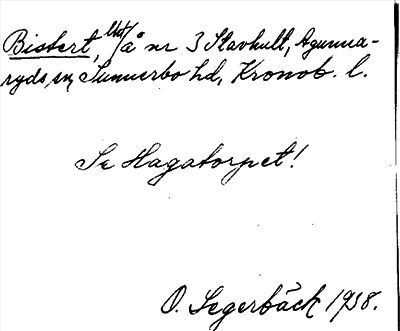 Bistert, lht/å nr 3 Stavhult, Agunna-
ryds sn, Sunnerbo hd, Kronob. l.
Se Hagatorpet!
O. Segerbäck 1938.